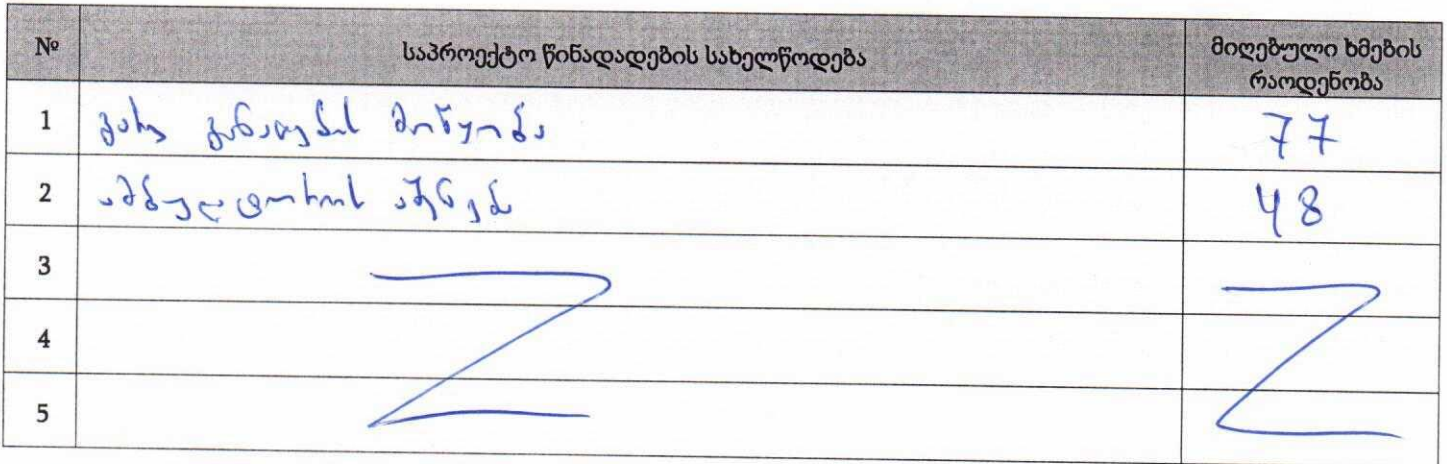 № საპროექტო წინადადების სახელწოდება მიღებული ხმების
რაოდენობა
1 გარე განათების მოწყობა 77
2 ამბულატორიის აშენება 48
3
4
5